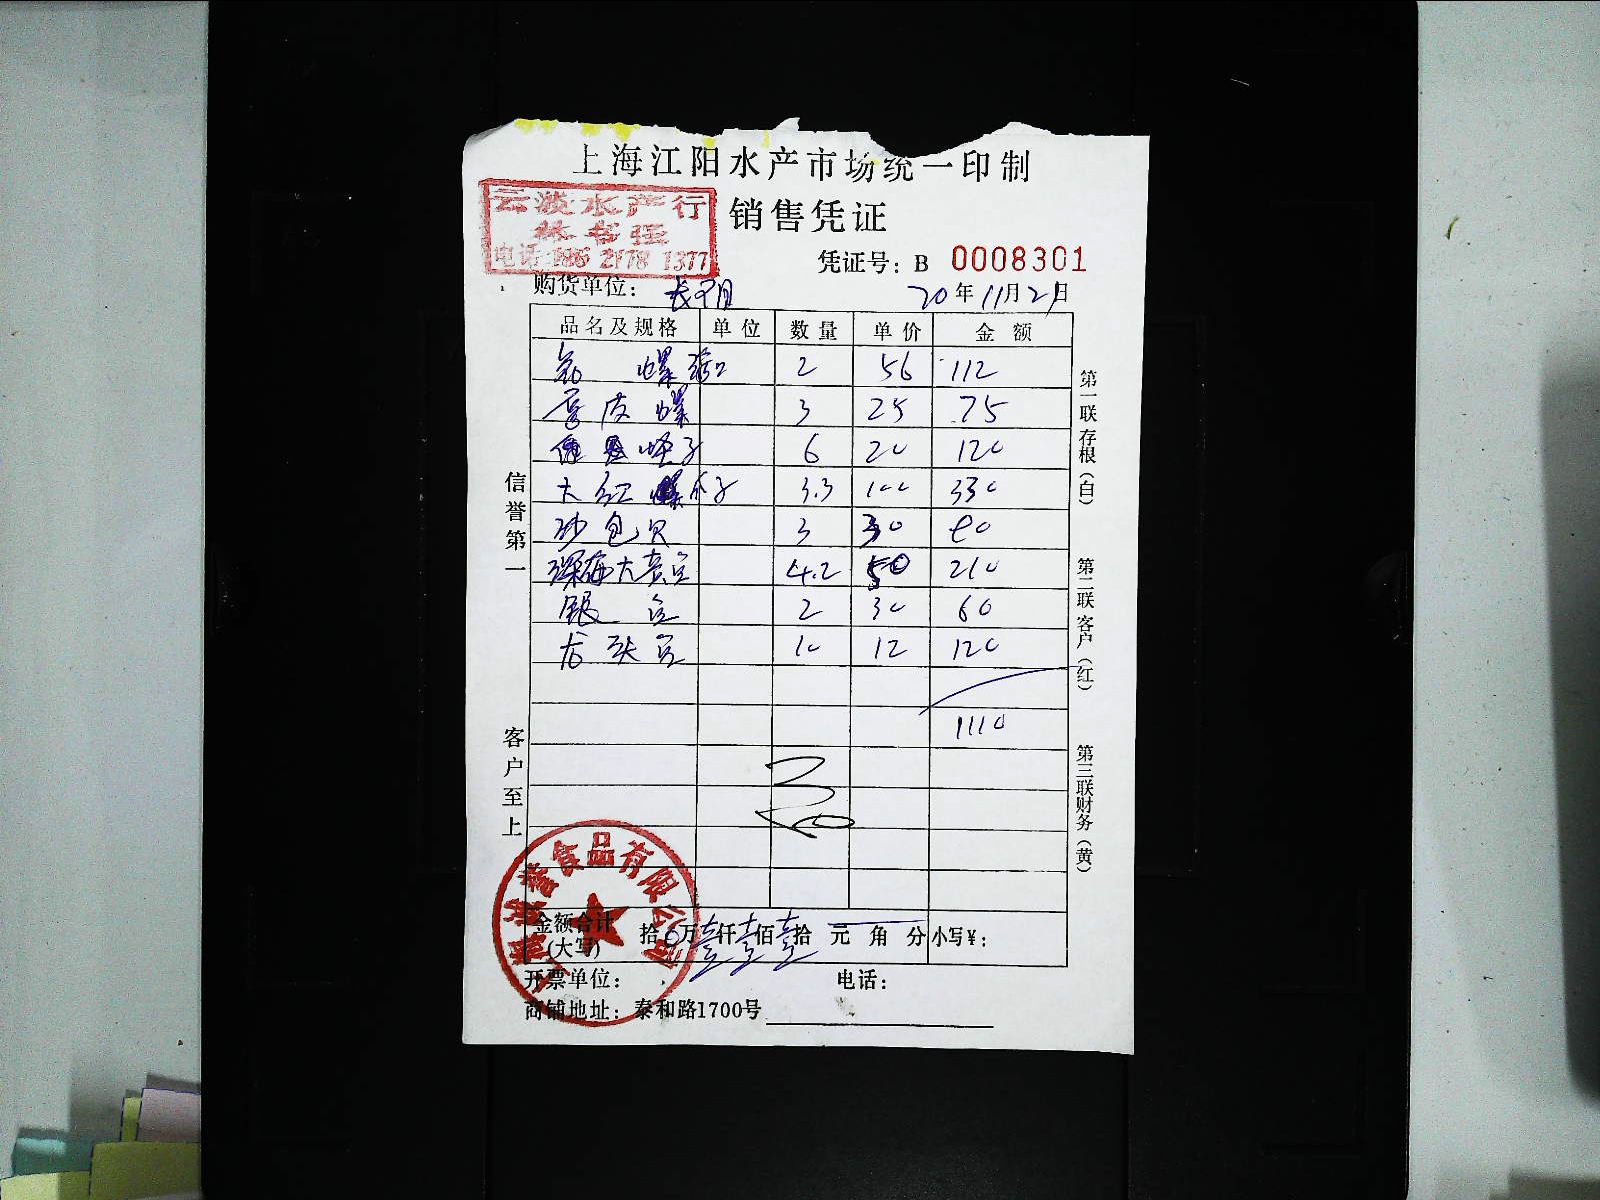 上海江阳水产市场统一印制
销售凭证
云波水产行
林书强
电话:186 2178 1377
凭证号：B 0008301
购货单位：长阳
20年11月21日
品名及规格 单位 数量 单价 金额
螺 2 56 112
香皮螺 3 25 75
蛏子 6 20 120
大红 3.3 100 330
沙包贝 3 30 90
深海大黄鱼 4.2 50 210
银鱼 2 30 60
龙头鱼 10 12 120
1110
金额合计(大写) 拾 0万 壹仟 壹佰 壹拾 元 角 分 小写¥：
开票单位： 电话：
商铺地址：泰和路1700号
信誉第一
客户至上
第一联存根（白）
第二联客户（红）
第三联财务（黄）
食品有限公司